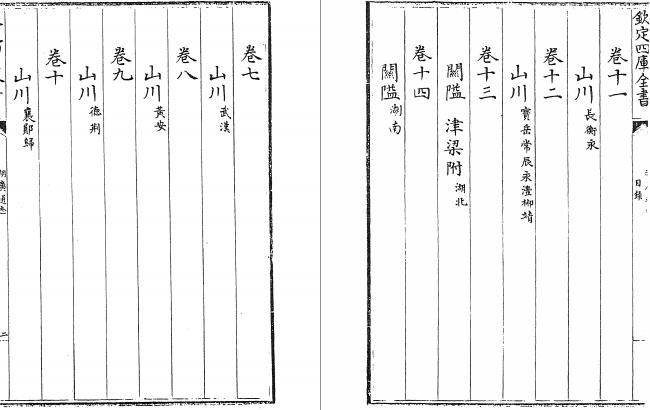 卷七
山川武漢
卷八
山川黃安
卷九
山川德荆
卷十
山川襄鄖歸
二
欽定四庫全書
目錄
卷十一
山川長衡永
卷十二
山川寶岳常辰永澧郴靖
卷十三
關隘 津梁附湖北
卷十四
關隘湖南